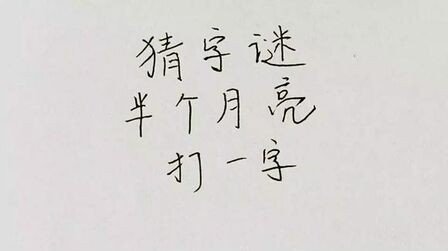 猜字谜
半个月亮
打一字